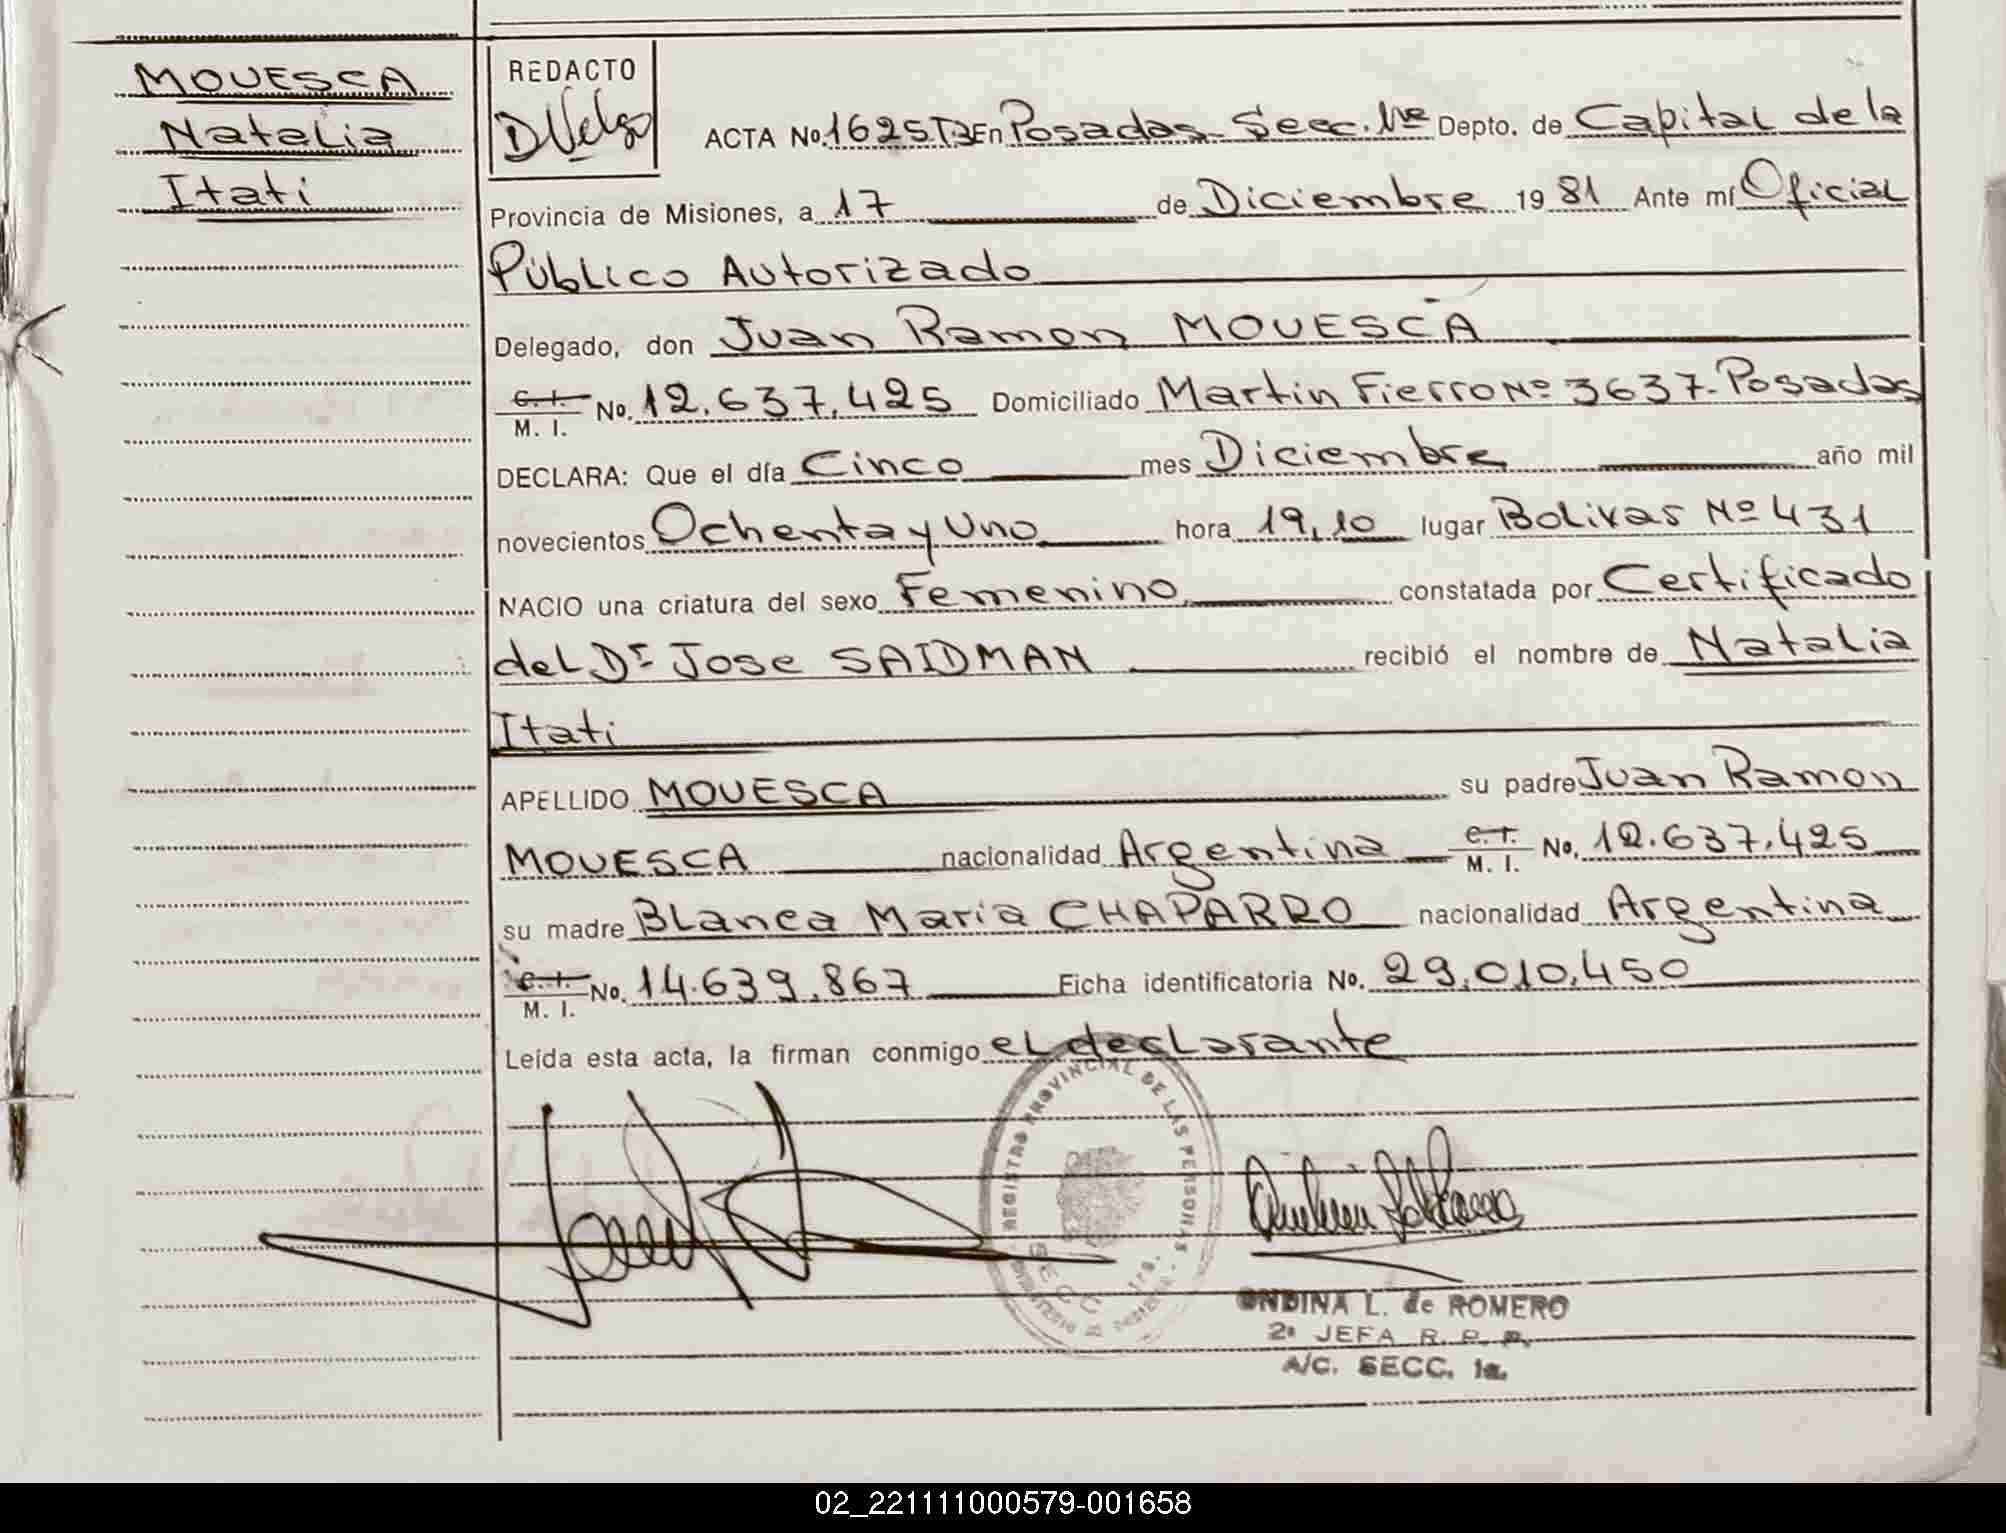 MOUESCA
Natalia
Itati
REDACTO
ACTA No. 1625 T3 En Posadas- Secc. 1ra Depto. de Capital de la
Provincia de Misiones, a 17 de Diciembre 1981 Ante mí Oficial
Público Autorizado
Delegado, don Juan Ramon MOUESCA
C. I. M. I. No. 12.637.425 Domiciliado Martin Fierro Nº 3637-Posadas
DECLARA: Que el día Cinco mes Diciembre año mil
novecientos Ochenta y Uno hora 19,10 lugar Bolivar Nº 431
NACIO una criatura del sexo Femenino constatada por Certificado
del Dr Jose SAIDMAN recibió el nombre de Natalia
Itati
APELLIDO MOUESCA su padre Juan Ramon
MOUESCA nacionalidad Argentina C. I. M. I. No. 12.637.425
su madre Blanca Maria CHAPARRO nacionalidad Argentina
C. I. M. I. No. 14.639.867 Ficha identificatoria No. 29.010.450
Leída esta acta, la firman conmigo el declarante
REGISTRO PROVINCIAL DE LAS PERSONAS
SECC. 1ra.
ONDINA L. de ROMERO
2ª JEFA R. P. P.
A/C. SECC. 1a.
02_221111000579-001658